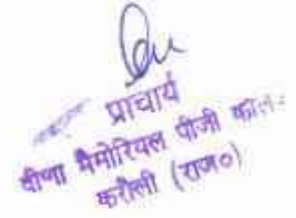 प्राचार्य
वीणा मैमोरियल पीजी
करौली (राज०)